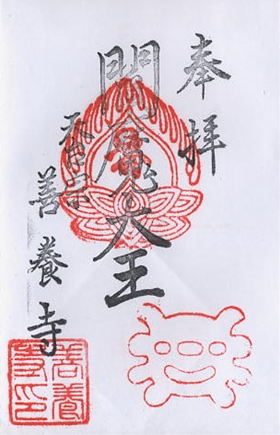 奉拝
閻魔大王
天台宗
善養寺
善養
寺印